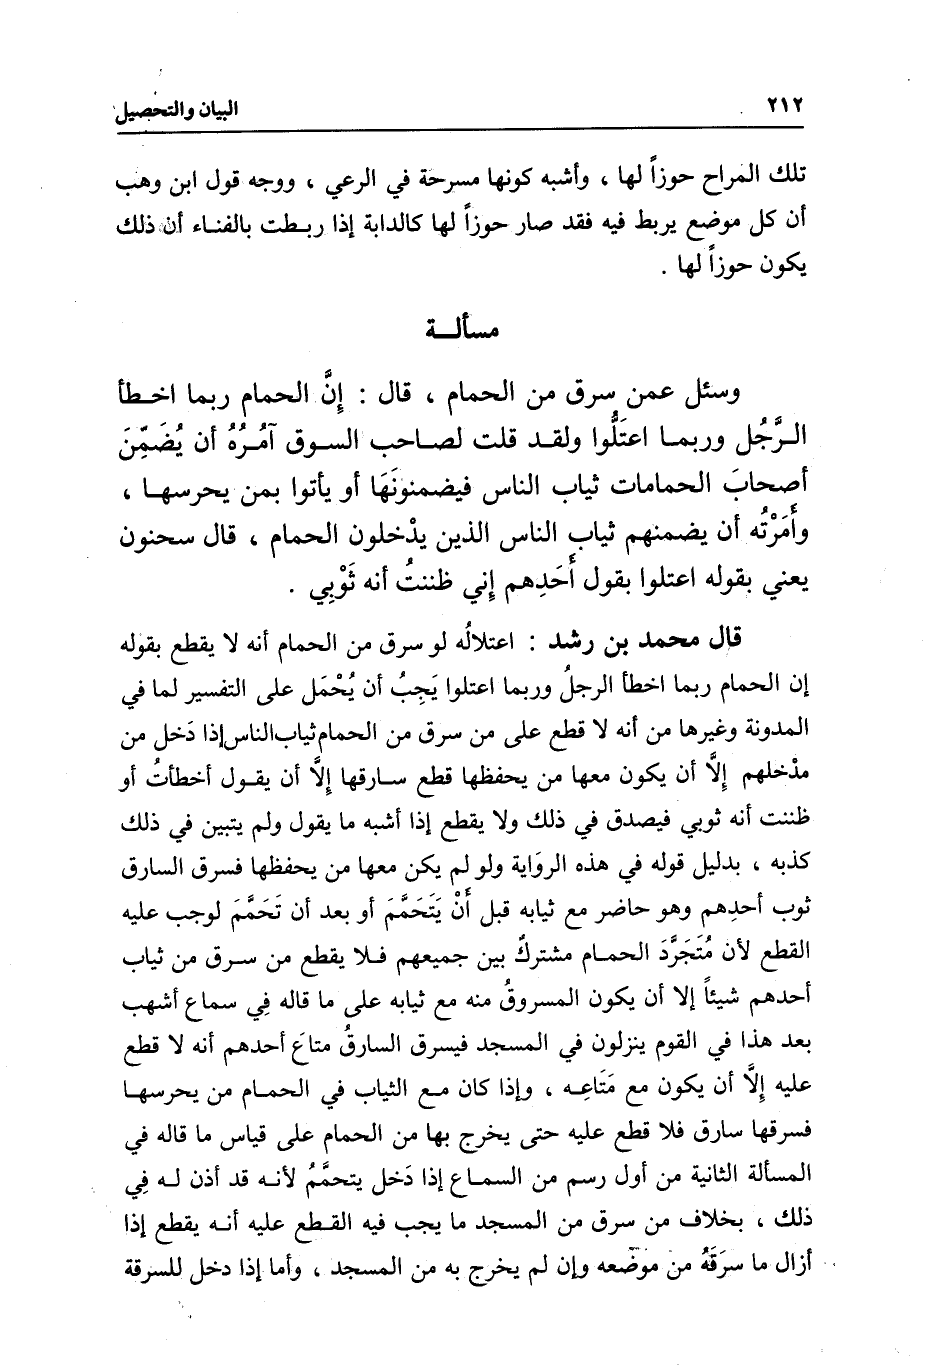 ٢١٢
البيان والتحصيل
تلك المراح حوزاً لها ، وأشبه كونها مسرحة في الرعي ، ووجه قول ابن وهب
أن كل موضع يربط فيه فقد صار حوزاً لها كالدابة إذا ربطت بالفناء أن ذلك
يكون حوزاً لها .
مسألة
وسئل عمن سرق من الحمام ، قال : إنَّ الحمام ربما اخطأ
الرَّجُل وربما اعتَلُّوا ولقد قلت لصاحب السوق آمُرُهُ أن يُضَمِّنَ
أصحابَ الحمامات ثياب الناس فيضمنونَهَا أو يأتوا بمن يحرسها ،
وأَمَرْتُه أن يضمنهم ثياب الناس الذين يدْخلون الحمام ، قال سحنون
يعني بقوله اعتلوا بقول أَحَدِهم إني ظننتُ أنه ثَوْبِي .
قال محمد بن رشد : اعتلالُه لو سرق من الحمام أنه لا يقطع بقوله
إن الحمام ربما اخطأ الرجلُ وربما اعتلوا يَجِبُ أن يُحْمَل على التفسير لما في
المدونة وغيرها من أنه لا قطع على من سرق من الحمام ثياب الناس إذا دَخل من
مدْخلهم إلَّا أن يكون معها من يحفظها قطع سارقها إلَّا أن يقول أخطأتُ أو
ظننت أنه ثوبي فيصدق في ذلك ولا يقطع إذا أشبه ما يقول ولم يتبين في ذلك
كذبه ، بدليل قوله في هذه الروَاية ولو لم يكن معها من يحفظها فسرق السارق
ثوب أحدِهم وهو حاضر مع ثيابه قبل أَنْ يَتَحَمَّمَ أو بعد أن تَحَمَّمَ لوجب عليه
القطع لأن مُتَجَرَّدَ الحمام مشتركٌ بين جميعهم فلا يقطع من سرق من ثياب
أحدهم شيئاً إلا أن يكون المسروقُ منه مع ثيابه على ما قاله فِي سماع أشهب
بعد هذا في القوم ينزلون في المسجد فيسرق السارقُ متاعَ أحدهم أنه لا قطع
عليه إلَّا أن يكون مع مَتَاعِه ، وإذا كان مع الثياب في الحمام من يحرسها
فسرقها سارق فلا قطع عليه حتى يخرج بها من الحمام على قياس ما قاله في
المسألة الثانية من أول رسم من السماع إذا دَخل يتحمَّمُ لأنه قد أذن له فِي
ذلك ، بخلاف من سرق من المسجد ما يجب فيه القطع عليه أنه يقطع إذا
أزال ما سرَقَهُ من موضعه وإن لم يخرج به من المسجد ، وأما إذا دخل للسرقة